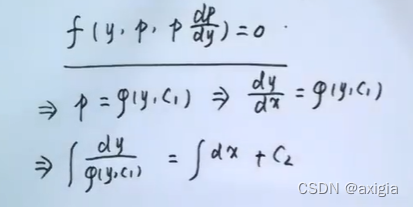 f(y, p, p dp/dy) = 0 .
⇒ p = φ(y, C₁) ⇒ dy/dx = φ(y, C₁)
⇒ ∫ dy/φ(y, C₁) = ∫ dx + C₂
CSDN @axigia